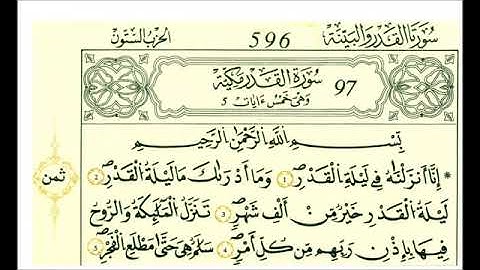 سورتا القدر والبينة 596 الحزب الستون
97 سورة القدر مكية
وهي خمس ءايات 5
بِسْمِ اللَّهِ الرَّحْمَٰنِ الرَّحِيمِ
* إِنَّا أَنزَلْنَٰهُ فِي لَيْلَةِ الْقَدْرِ 1 وَمَا أَدْرَىٰكَ مَا لَيْلَةُ الْقَدْرِ 2
ثمن
لَيْلَةُ الْقَدْرِ خَيْرٌ مِّنْ أَلْفِ شَهْرٍ 3 تَنَزَّلُ الْمَلَٰئِكَةُ وَالرُّوحُ
فِيهَا بِإِذْنِ رَبِّهِم مِّن كُلِّ أَمْرٍ 4 سَلَٰمٌ هِيَ حَتَّىٰ مَطْلَعِ الْفَجْرِ 5